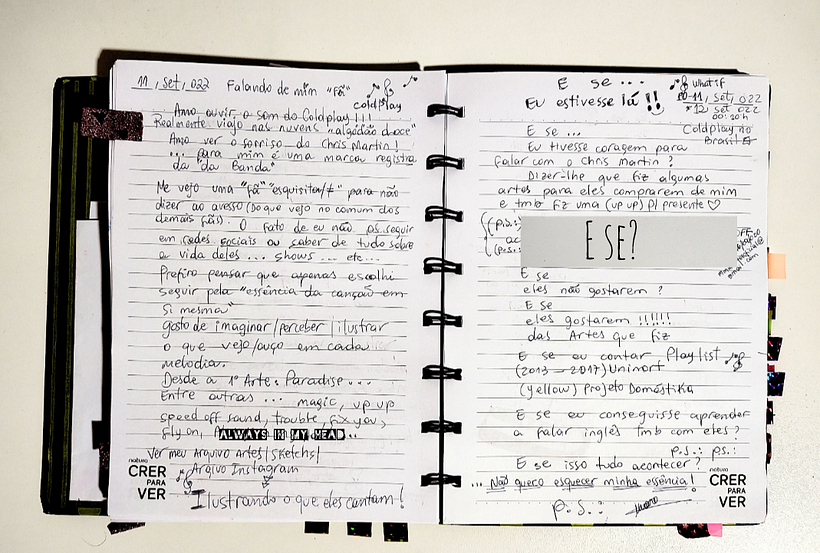 11, set, 022
Falando de mim "Fã"
coldplay
Amo ouvir o som do Coldplay!!!
Realmente viajo nas nuvens "algodão doce"
Amo ver o sorriso do Chris Martin!
... para mim é uma marca registra
da "da Banda"
Me vejo uma "Fã" esquisita/≠" para não
dizer ao avesso (Do que vejo no comum dos
demais fãs). O fato de eu não os seguir
em redes sociais ou saber de tudo sobre
a vida deles ... shows ... etc...
Prefiro pensar que apenas escolhi
seguir pela "essência da canção em
si mesma"
gosto de imaginar/perceber/ilustrar
o que vejo/ouço em cada
melodia.
Desde a 1ª Arte: Paradise...
Entre outras ... magic, up up
speed off sound, trouble, fix you,
fly on, ALWAYS IN MY HEAD...
Ver meu Arquivo Artes/sketchs/
Arquivo Instagram
Ilustrando o que eles cantam!
natura
CRER
PARA
VER
E se ...
Eu estivesse lá!!
what if
11, set, 022
*12, set 022
00:20h
Coldplay no
Brasil
E se ...
Eu tivesse coragem para
falar com o Chris Martin?
Dizer-lhe que fiz algumas
artes para eles comprarem de mim
e tmb fiz uma (up up) p/ presente ♡
E SE?
E se
eles não gostarem?
E se
eles gostarem!!!!!!
das Artes que fiz
E se eu contar Playlist
(2013-2017) Uninort
(yellow) Projeto Doméstika
E se eu conseguisse aprender
a falar inglês tmb com eles?
p.s.: ps.:
E se isso tudo acontecer?
... Não quero esquecer minha essência!
p.s.:
natura
CRER
PARA
VER